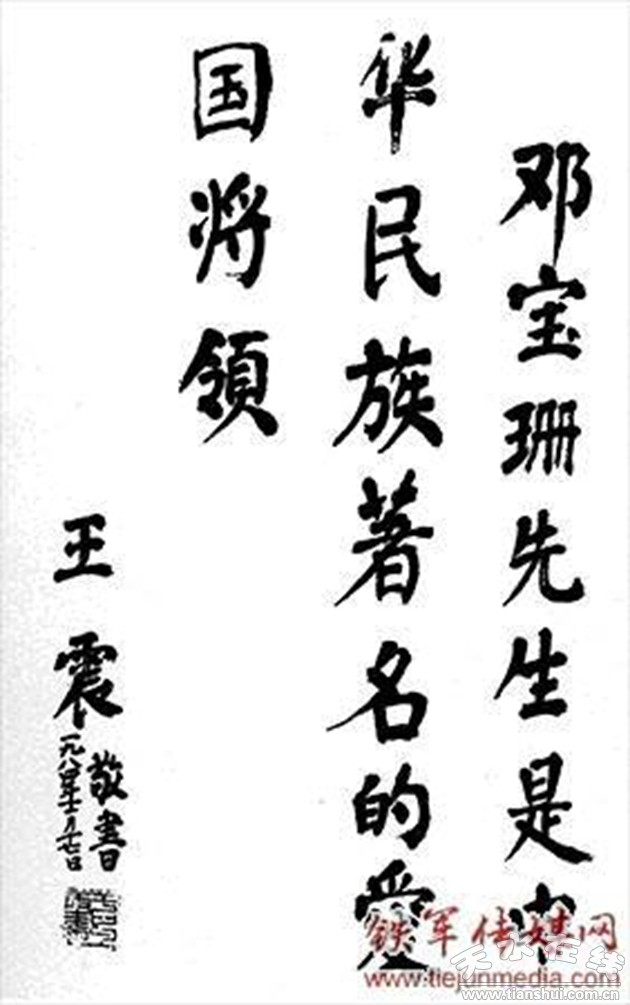 邓宝珊先生是中
华民族著名的愛
国将领
王震
敬書
铁军传媒网
www.tiejunmedia.com
天水在线
www.tianshui.com.cn